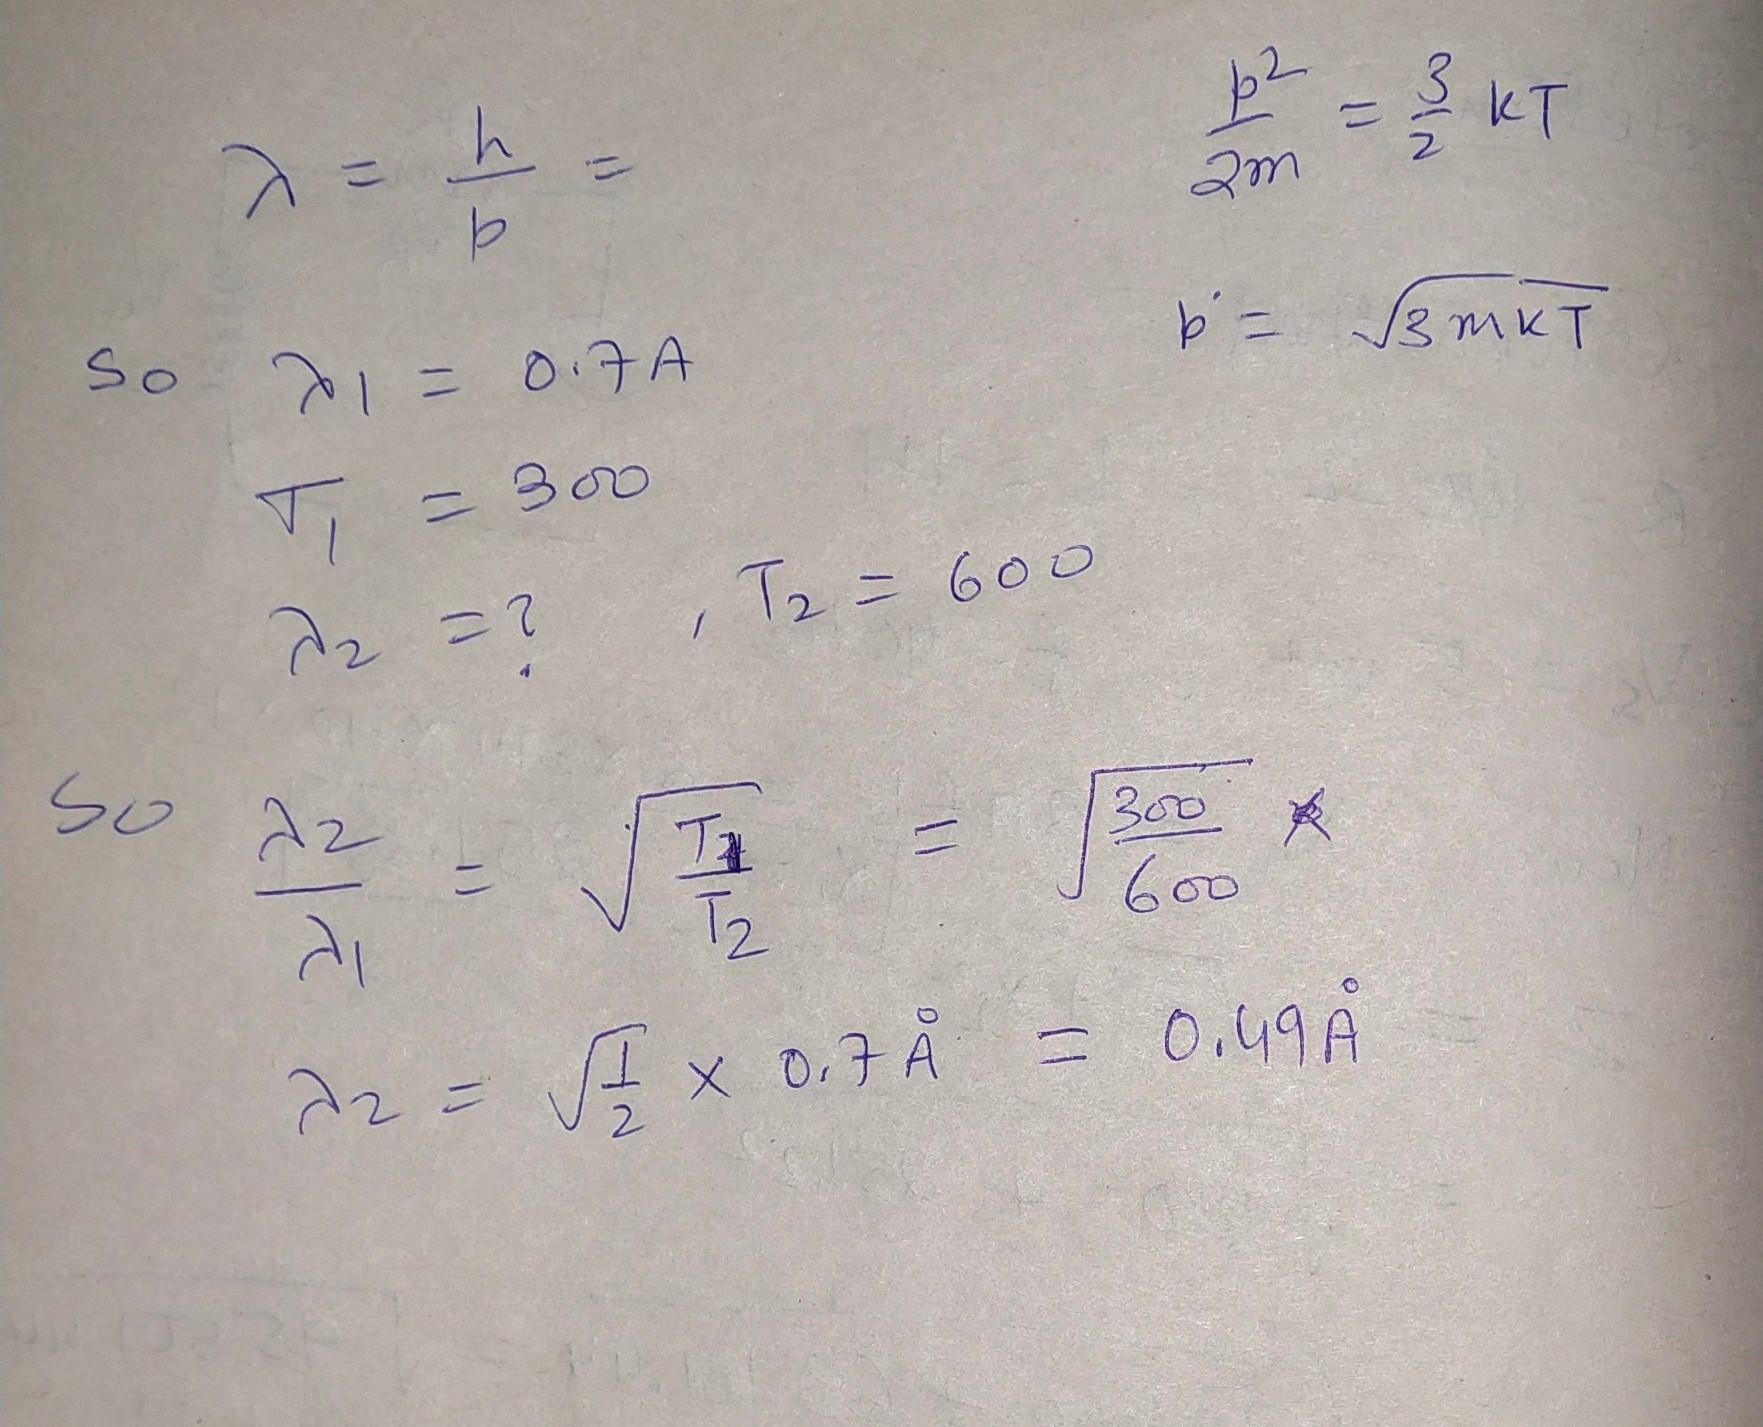 λ = h/p =
p²/2m = 3/2 KT
p = √3mKT
So λ1 = 0.7A
T1 = 300
λ2 = ? , T2 = 600
So λ2/λ1 = √T1/T2 = √300/600
λ2 = √1/2 × 0.7Å = 0.49Å